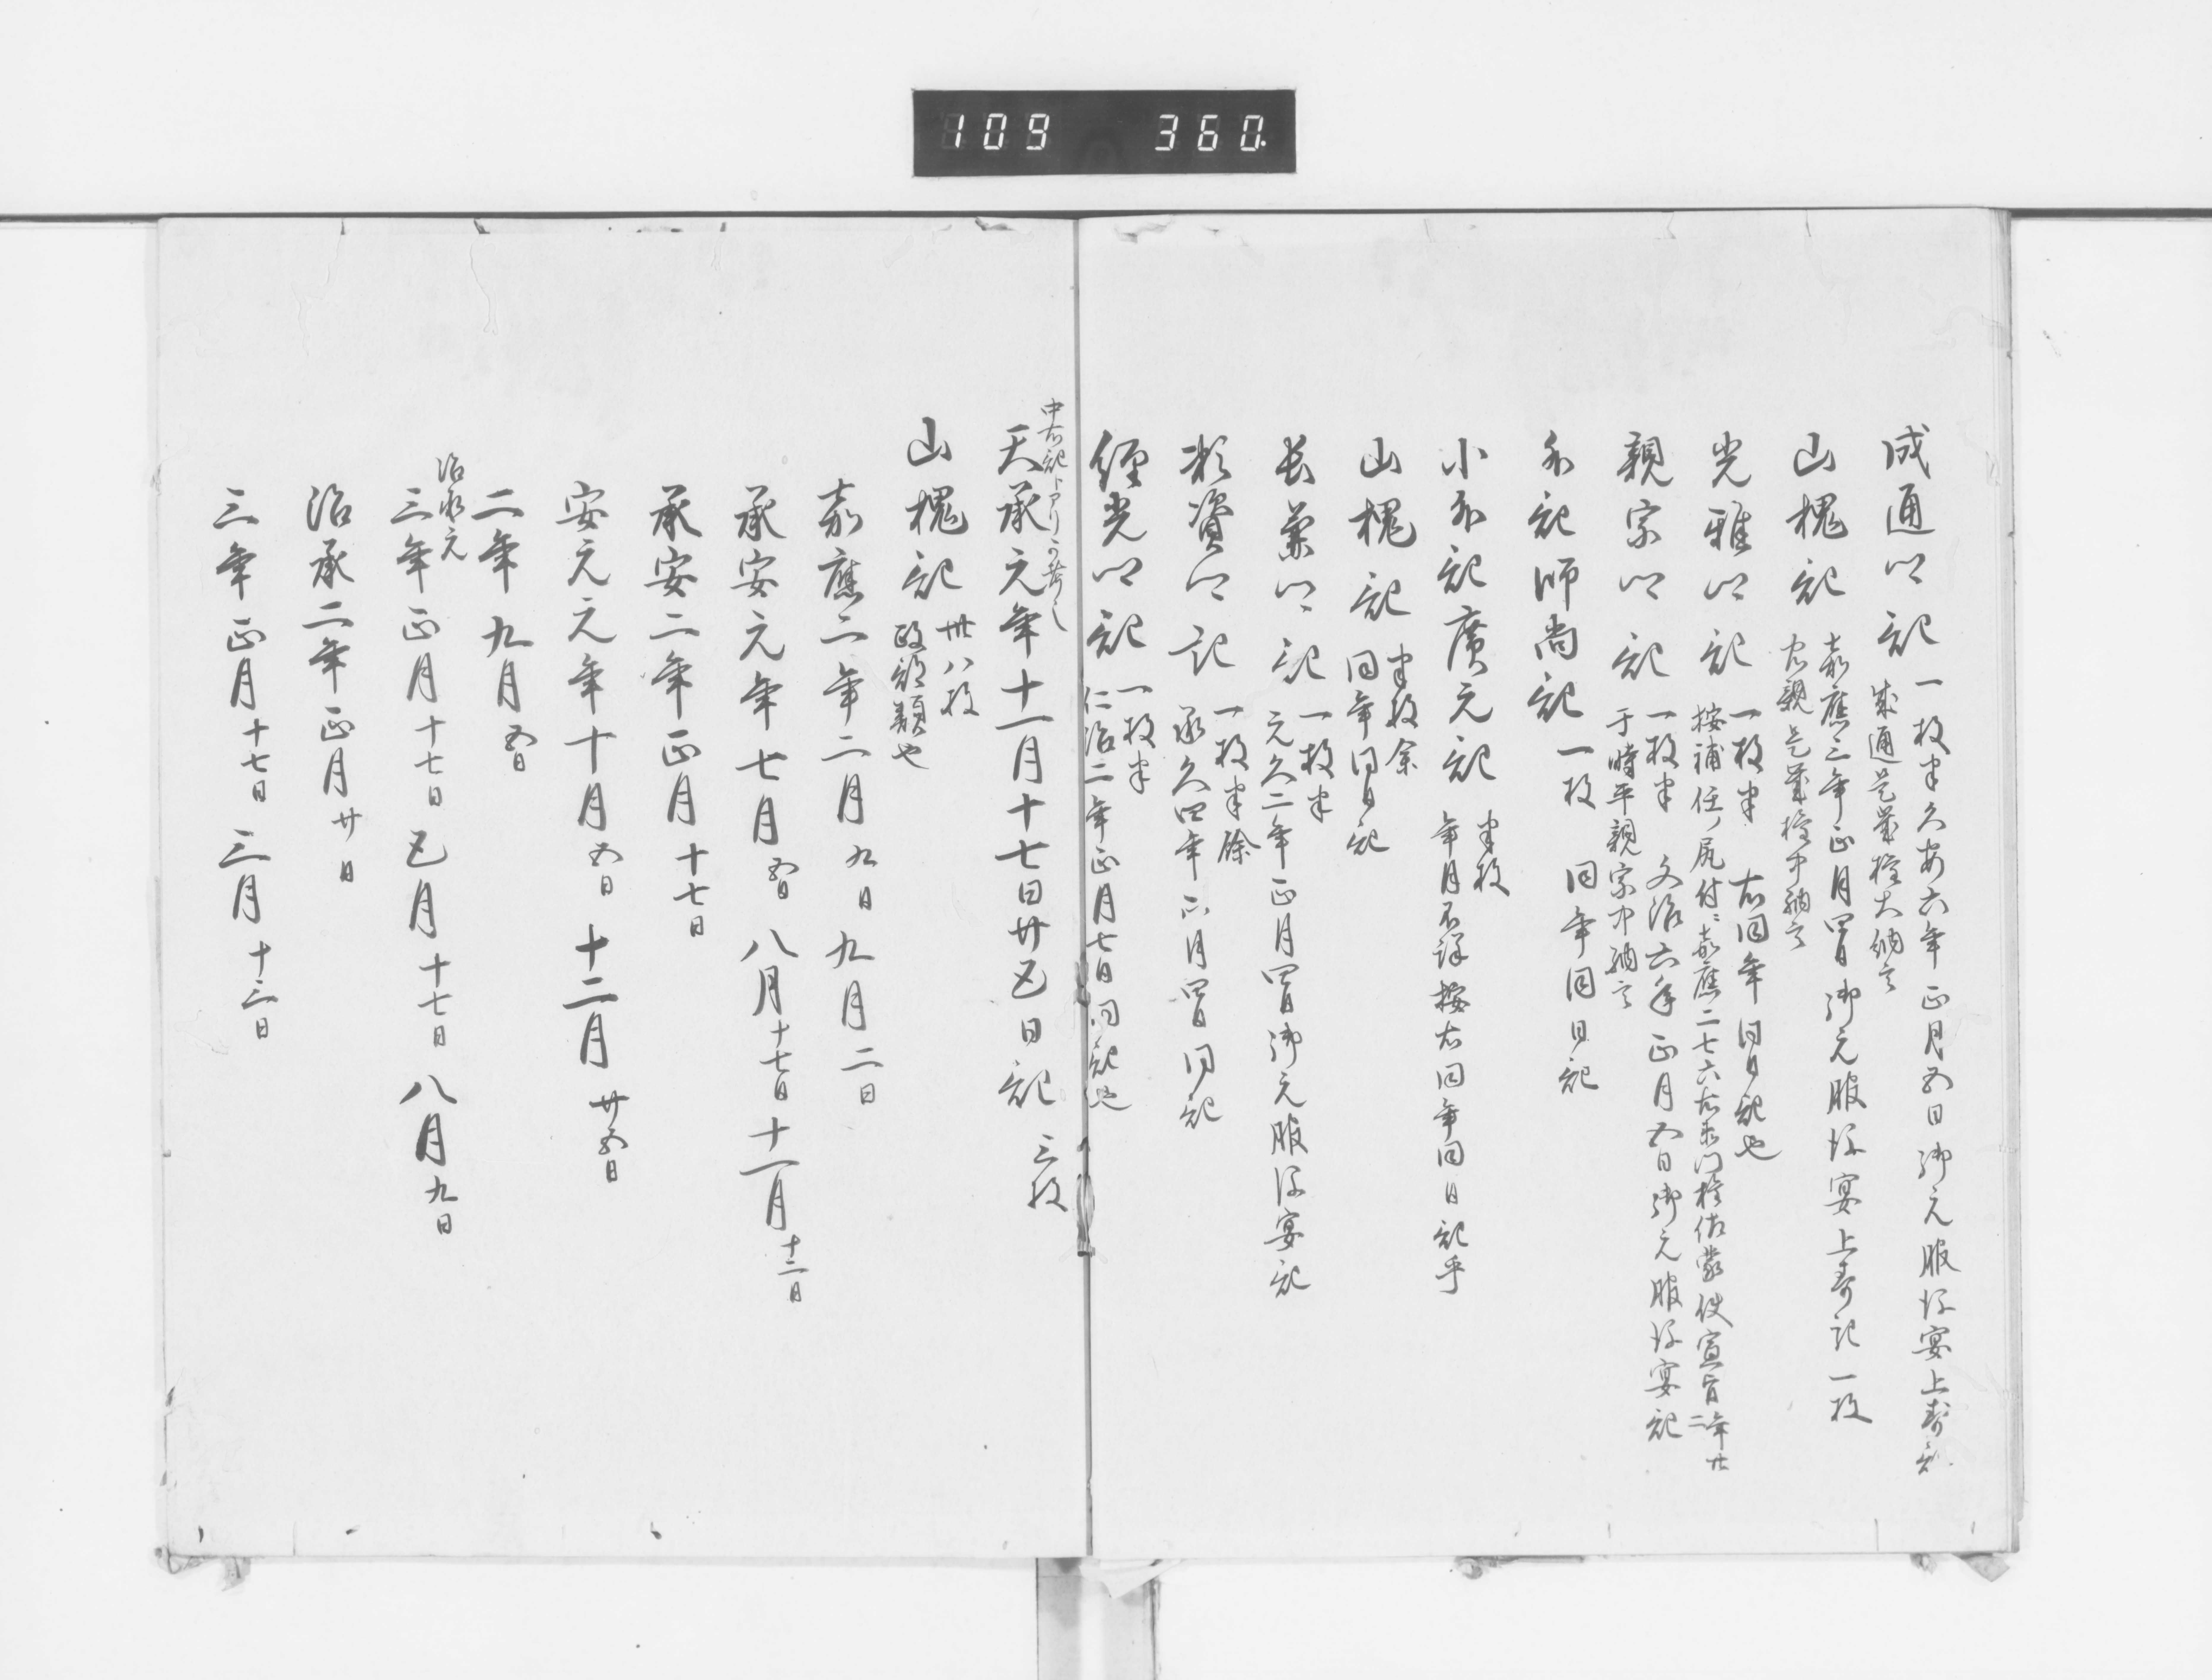 109 360
成通卿記 一枚半 久安六年正月五日御元服後宴上寿記
成通是業権大納言
山槐記 嘉應三年正月四日御元服後宴上寿記一枚
忠親是業権中納言
光雅卿記 一枚半 右同年同日記也
按補任ノ尻付ニ嘉應二七六右衛門権佐蒙使宣旨
親宗卿記 一枚半 文治六年正月五日御元服後宴記
于時平親宗中納言
外記師尚記 一枚 同年同日記
小外記廣元記 半枚
年月不詳按右同年同日記乎
山槐記 半枚余
同年同日記
長兼卿記 一枚半
元久二年正月四日御元服後宴記
頼資卿記 一枚半餘
承久四年正月四日同記
経光卿記 一枚半
仁治二年正月七日同記也
中右記トアリ可考之
天承元年十一月十七日廿五日記 三枚
山槐記 卅八枚
改部類也
嘉應二年二月九日九月二日
承安元年七月五日八月十七日十一月十二日
承安二年正月十七日
安元元年十月五日十二月廿五日
二年九月五日
治承元
三年正月十七日五月十七日八月九日
治承二年正月廿日
三年正月十七日三月十三日